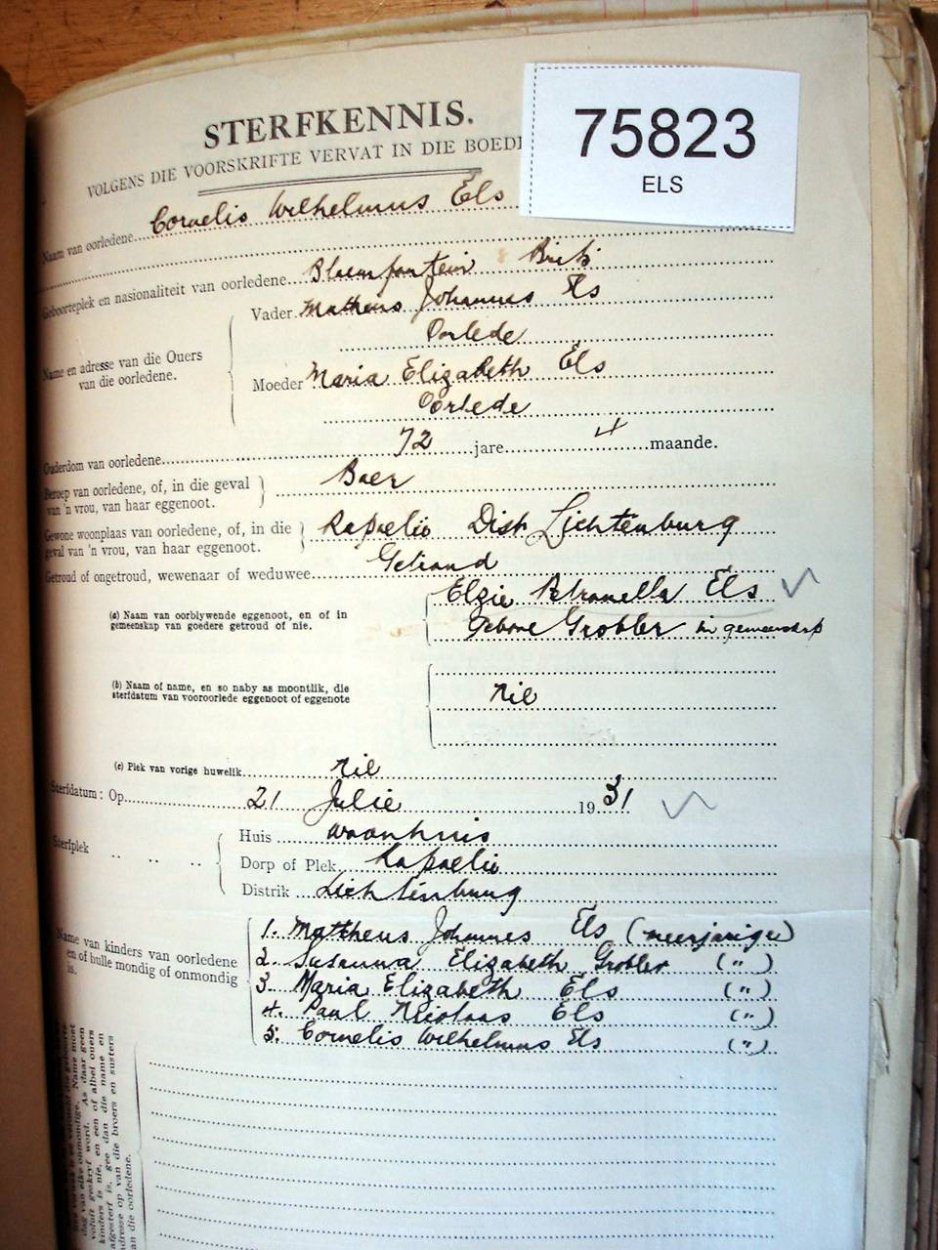 75823
ELS
STERFKENNIS.
VOLGENS DIE VOORSKRIFTE VERVAT IN DIE BOEDE
Naam van oorledene Cornelis Wilhelmus Els
Geboorteplek en nasionaliteit van oorledene Bloemfontein Brits
Name en adresse van die Ouers
van die oorledene.
Vader Matheus Johannes Els
Oorlede
Moeder Maria Elizabeth Els
Oorlede
Ouderdom van oorledene 72 jare 4 maande.
Beroep van oorledene, of, in die geval
van 'n vrou, van haar eggenoot.
Boer
Gewone woonplaas van oorledene, of, in die
geval van 'n vrou, van haar eggenoot.
Rapaelie Dist Lichtenburg
Getroud of ongetroud, wewenaar of weduwee Getroud
(a) Naam van oorblywende eggenoot, en of in
gemeenskap van goedere getroud of nie.
Elzie Petronella Els
Gebore Grobler in gemeenskap
(b) Naam of name, en so naby as moontlik, die
sterfdatum van vooroorlede eggenoot of eggenote
Nil
(c) Plek van vorige huwelik Nil
Sterfdatum: Op 21 Julie 1931
Sterfplek .. .. ..
Huis woonhuis
Dorp of Plek Rapaelie
Distrik Lichtenburg
Name van kinders van oorledene
en of hulle mondig of onmondig
is.
1. Mattheus Johannes Els (meerjarige)
2. Susanna Elizabeth Grobler (")
3. Maria Elizabeth Els (")
4. Paul Nicolaas Els (")
5. Cornelis Wilhelmus Els (")
dag van elke onmondige. Name moet
voluit geskryf word. As daar geen
kinders is nie, en een of albei ouers
afgesterf is, gee dan die name en
adresse op van die broers en susters
van die oorledene.